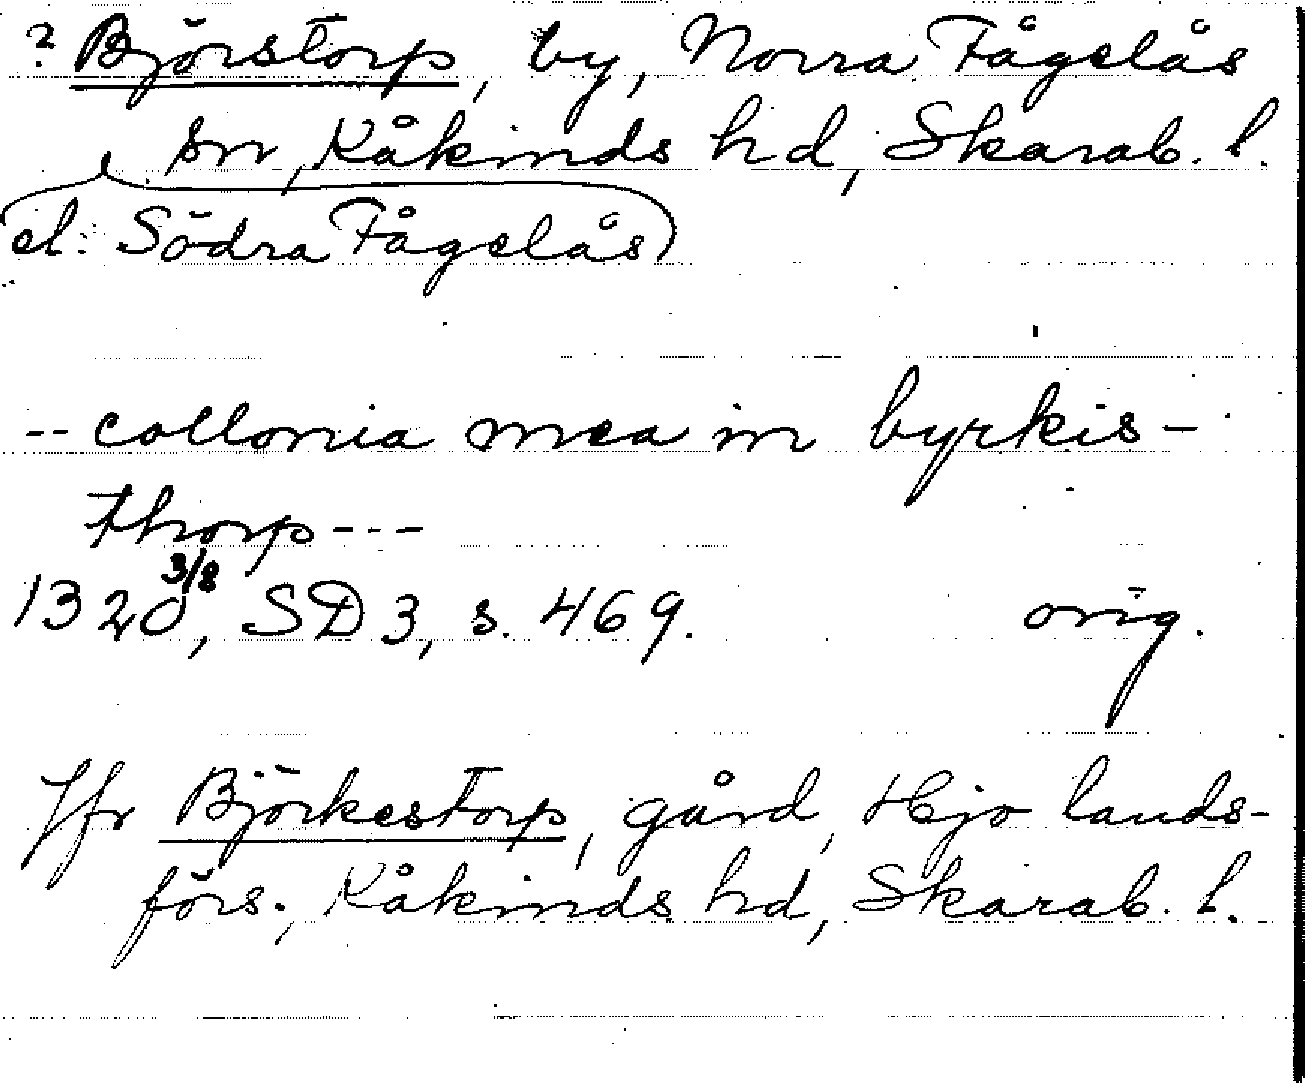 ? Björstorp, by, Norra Fågelås
sn, Kåkinds hd, Skarab. l.
el. Södra Fågelås)
-- collonia mea in byrkis-
thorp ---
1320 3/8, SD 3, s. 469. orig.
Jfr Björkestorp, gård, Hjo lands-
förs., Kåkinds hd, Skarab. l.